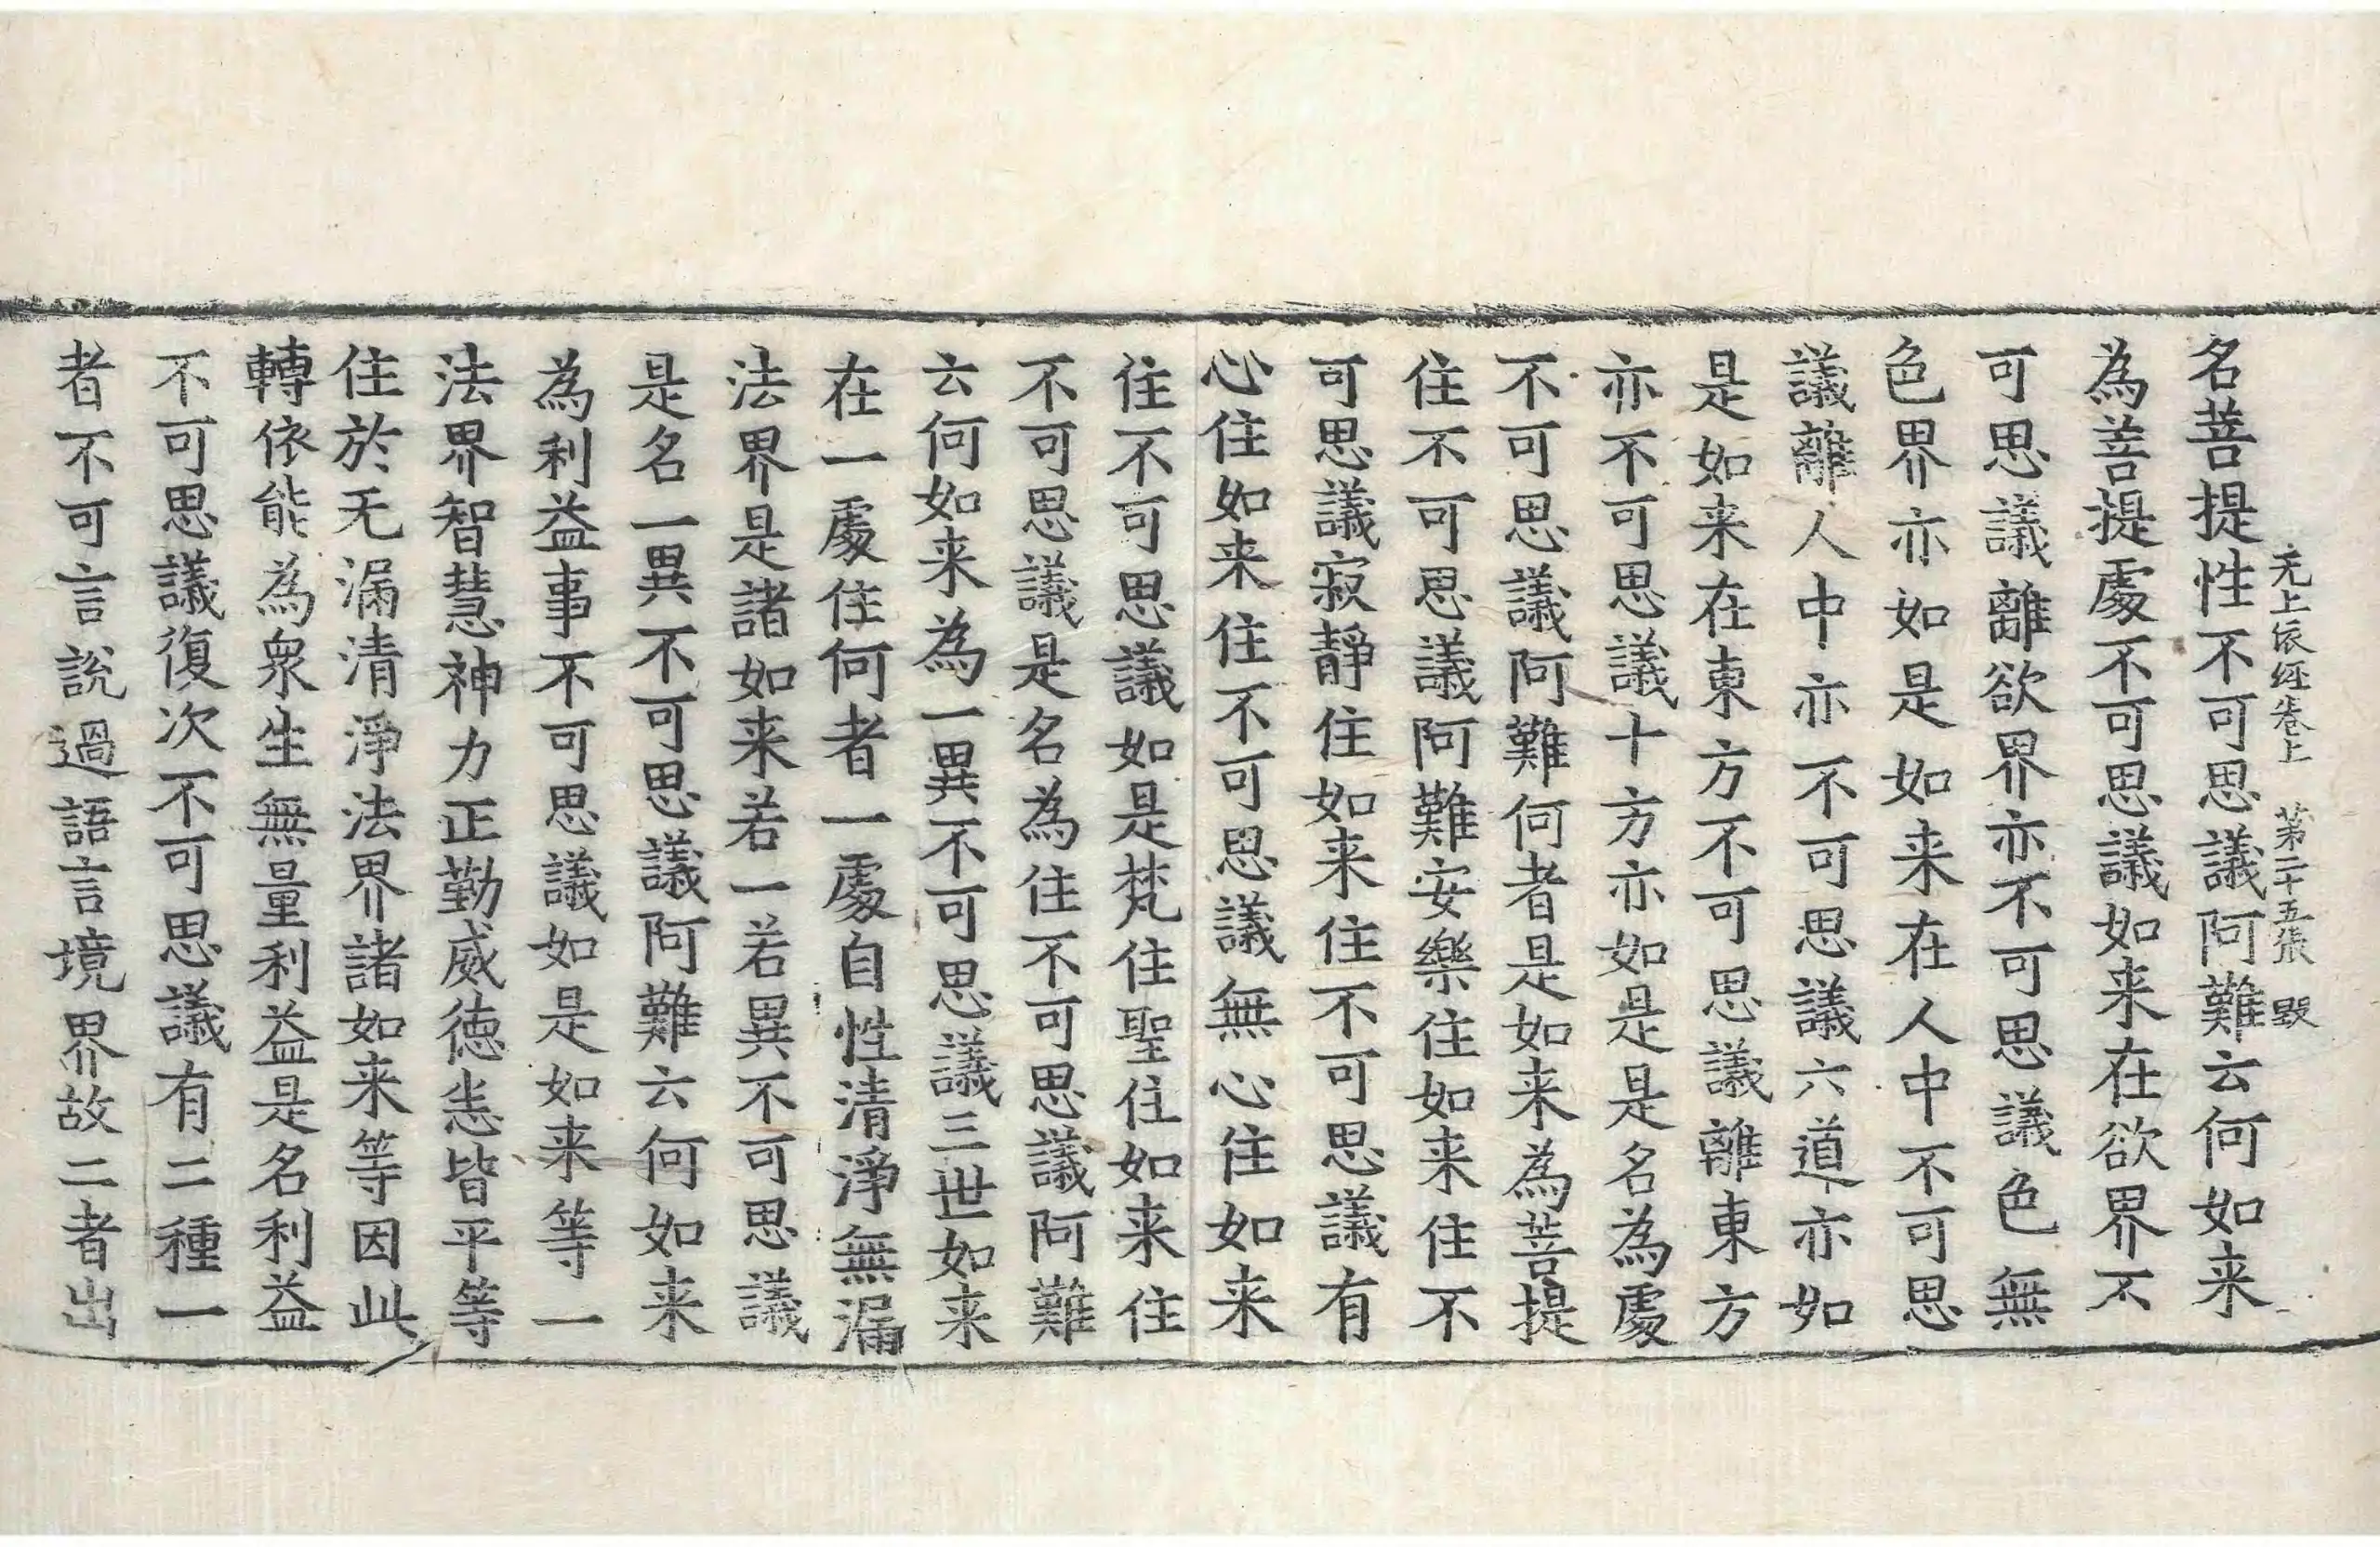 无上依经卷上 第二十五张 毁
名菩提性不可思議阿難云何如来
為菩提處不可思議如来在欲界不
可思議離欲界亦不可思議色無
色界亦如是如来在人中不可思
議離人中亦不可思議六道亦如
是如来在東方不可思議離東方
亦不可思議十方亦如是是名為處
不可思議阿難何者是如来為菩提
住不可思議阿難安樂住如来住不
可思議寂靜住如来住不可思議有
心住如来住不可思議無心住如来
住不可思議如是梵住聖住如来住
不可思議是名為住不可思議阿難
云何如来為一異不可思議三世如来
在一處住何者一處自性清淨無漏
法界是諸如来若一若異不可思議
是名一異不可思議阿難云何如来
為利益事不可思議如是如来等一
法界智慧神力正勤威徳悉皆平等
住於无漏清淨法界諸如来等因此
轉依能為衆生無量利益是名利益
不可思議復次不可思議有二種一
者不可言說過語言境界故二者出